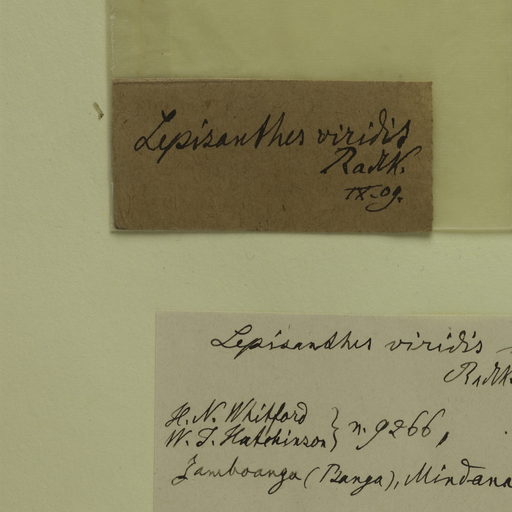 Lepisanthes viridis
Radlk.
IX-09.
Lepisanthes viridis
Radlk.
H. N. Whitford
W. I. Hutchinson } n. 9266,
Zamboanga (Banga), Mindana